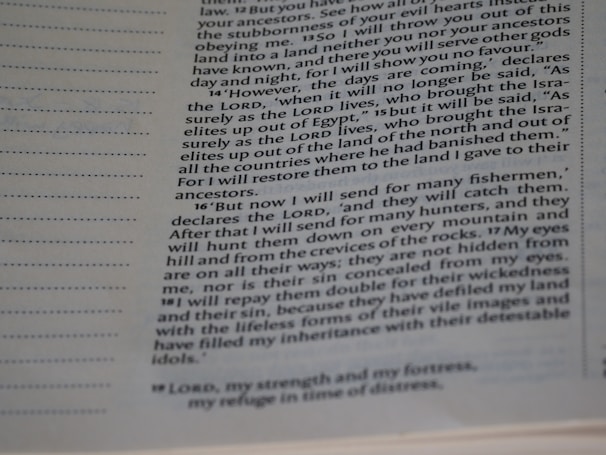 them.
law. 12 But you have
your ancestors. See how all of
the stubbornness of your evil hearts instead
obeying me. 13 So I will throw you out of this
land into a land neither you nor your ancestors
have known, and there you will serve other gods
day and night, for I will show you no favour.”
14 ‘However, the days are coming,’ declares
the LORD, ‘when it will no longer be said, “As
surely as the LORD lives, who brought the Isra-
elites up out of Egypt,” 15 but it will be said, “As
surely as the LORD lives, who brought the Isra-
elites up out of the land of the north and out of
all the countries where he had banished them.”
For I will restore them to the land I gave to their
ancestors.
16 ‘But now I will send for many fishermen,’
declares the LORD, ‘and they will catch them.
After that I will send for many hunters, and they
will hunt them down on every mountain and
hill and from the crevices of the rocks. 17 My eyes
are on all their ways; they are not hidden from
me, nor is their sin concealed from my eyes.
18 I will repay them double for their wickedness
and their sin, because they have defiled my land
with the lifeless forms of their vile images and
have filled my inheritance with their detestable
idols.’
19 LORD, my strength and my fortress,
my refuge in time of distress,